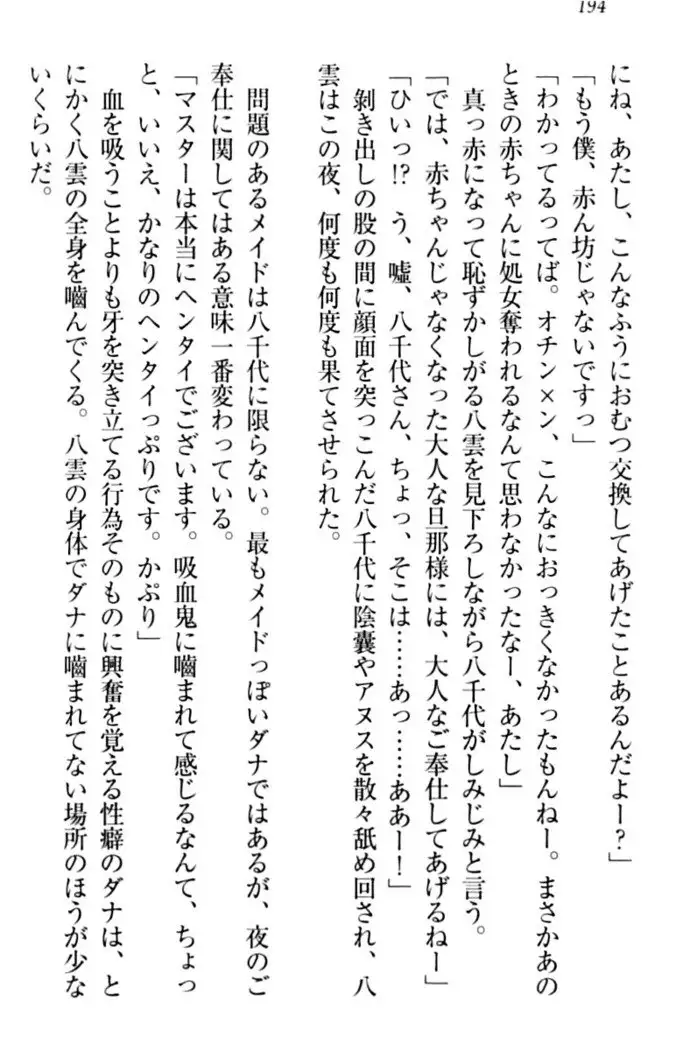 194
にね、あたし、こんなふうにおむつ交換してあげたことあるんだよー?」
「もう僕、赤ん坊じゃないですっ」
「わかってるってば。オチン×ン、こんなにおっきくなかったもんねー。まさかあの
ときの赤ちゃんに処女奪われるなんて思わなかったなー、あたし」
真っ赤になって恥ずかしがる八雲を見下ろしながら八千代がしみじみと言う。
「では、赤ちゃんじゃなくなった大人な旦那様には、大人なご奉仕してあげるねー」
「ひいっ!? う、嘘、八千代さん、ちょっ、そこは……あっ……ああー!」
剝き出しの股の間に顔面を突っこんだ八千代に陰囊やアヌスを散々舐め回され、八
雲はこの夜、何度も何度も果てさせられた。
問題のあるメイドは八千代に限らない。最もメイドっぽいダナではあるが、夜のご
奉仕に関してはある意味一番変わっている。
「マスターは本当にヘンタイでございます。吸血鬼に嚙まれて感じるなんて、ちょっ
と、いいえ、かなりのヘンタイっぷりです。かぷり」
血を吸うことよりも牙を突き立てる行為そのものに興奮を覚える性癖のダナは、と
にかく八雲の全身を嚙んでくる。八雲の身体でダナに嚙まれてない場所のほうが少な
いくらいだ。